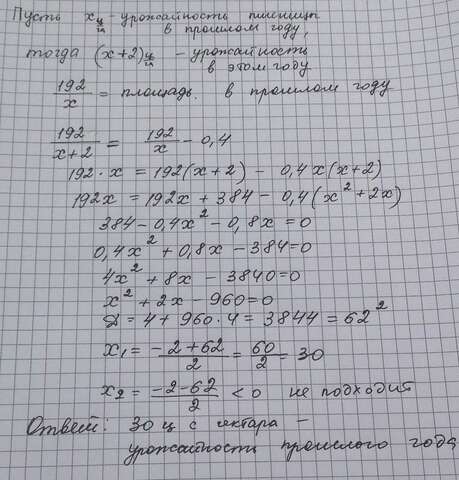 Пусть x ц/га - урожайность пшеницы
в прошлом году,
тогда (x+2) ц/га - урожайность
в этом году
192/x = площадь в прошлом году
192/(x+2) = 192/x - 0,4
192·x = 192(x+2) - 0,4x(x+2)
192x = 192x + 384 - 0,4(x²+2x)
384 - 0,4x² - 0,8x = 0
0,4x² + 0,8x - 384 = 0
4x² + 8x - 3840 = 0
x² + 2x - 960 = 0
D = 4 + 960·4 = 3844 = 62²
x₁ = (-2+62)/2 = 60/2 = 30
x₂ = (-2-62)/2 < 0 не подходит
Ответ: 30 ц с гектара -
урожайность прошлого года